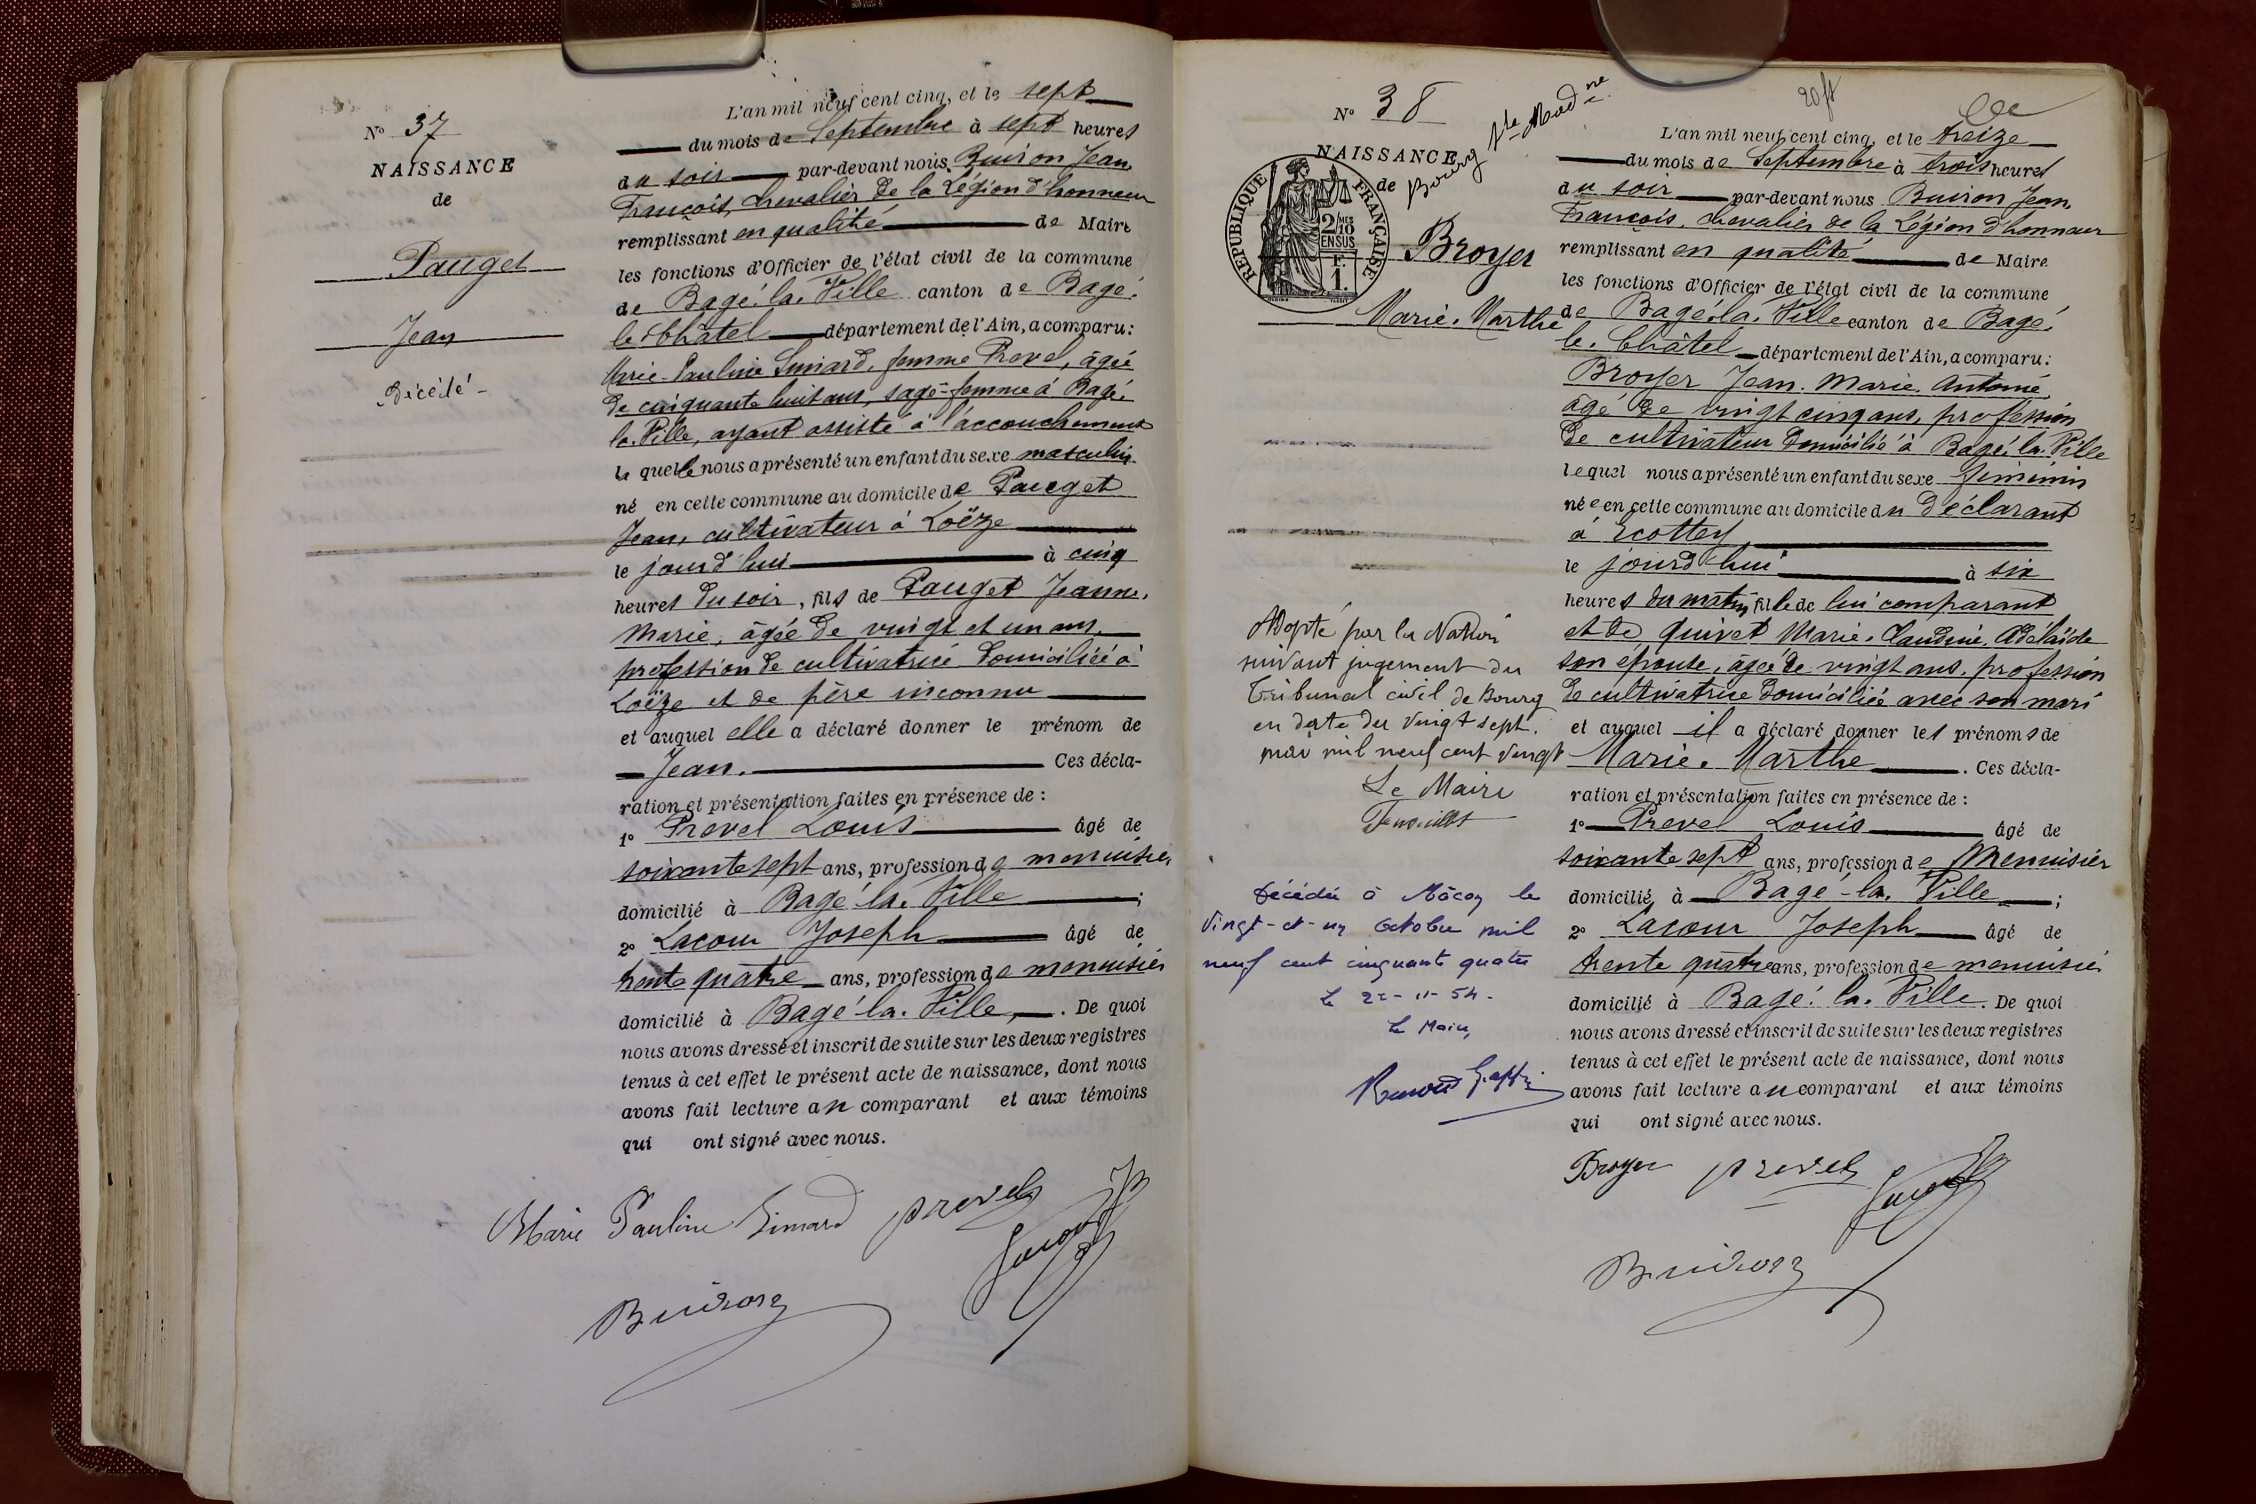 N° 37
NAISSANCE
de
Pauget
Jean
Décédé -
L'an mil neuf cent cinq, et le sept
du mois de Septembre à sept heures
du soir par-devant nous Buiron Jean
François, chevalier de la Légion d'honneur
remplissant en qualité de Maire
les fonctions d'Officier de l'état civil de la commune
de Bagé.la.Ville canton de Bagé.
le Châtel département de l'Ain, a comparu:
Marie-Pauline Simard, femme Prevel, âgée
de cinquante huit ans, sage-femme à Bagé.
la.Ville, ayant assisté à l'accouchement
laquelle nous a présenté un enfant du sexe masculin
né en cette commune au domicile de Pauget
Jean, cultivateur à Loëze
le jourd'hui à cinq
heures du soir, fils de Pauget Jeanne.
Marie, âgée de vingt et un ans,
profession de cultivatrice domiciliée à
Loëze et de père inconnu
et auquel elle a déclaré donner le prénom de
Jean. Ces décla-
ration et présentation faites en présence de :
1° Prevel Louis âgé de
soixante sept ans, profession de menuisier
domicilié à Bagé la. Ville ;
2° Lacour Joseph âgé de
trente quatre ans, profession de menuisier
domicilié à Bagé la. Ville, . De quoi
nous avons dressé et inscrit de suite sur les deux registres
tenus à cet effet le présent acte de naissance, dont nous
avons fait lecture au comparant et aux témoins
qui ont signé avec nous.
Marie Pauline Simard prevel
Lacour
Buiron
N° 38
NAISSANCE
de
Bourg
RÉPUBLIQUE FRANÇAISE
2/10 MES EN SUS
F. 1.
Broyer
Marie. Marthe
Adopté par la Nation
suivant jugement du
Tribunal civil de Bourg
en date du vingt sept.
mai mil neuf cent vingt
Le Maire
Décédée à Mâcon le
vingt-et-un octobre mil
neuf cent cinquante quatre
Le 22-11-54.
Le Maire,
L'an mil neuf cent cinq, et le treize
du mois de Septembre à trois heures
du soir par-devant nous Buiron Jean
François, chevalier de la Légion d'honneur
remplissant en qualité de Maire
les fonctions d'Officier de l'état civil de la commune
de Bagé.la.Ville canton de Bagé.
le.Châtel département de l'Ain, a comparu:
Broyer Jean.Marie.Antoine
âgé de vingt cinq ans, profession
de cultivateur domicilié à Bagé.la.Ville
lequel nous a présenté un enfant du sexe féminin
née en cette commune au domicile du déclarant
à Ecottey
le jourd'hui à six
heures du matin, fille de lui comparant
et de Quivet Marie.Claudine.Adélaïde
son épouse, âgée de vingt ans, profession
de cultivatrice domiciliée avec son mari
et auquel il a déclaré donner les prénoms de
Marie. Marthe . Ces décla-
ration et présentation faites en présence de :
1° Prevel Louis âgé de
soixante sept ans, profession de Menuisier
domicilié à Bagé-la. Ville ;
2° Lacour Joseph âgé de
trente quatre ans, profession de menuisier
domicilié à Bagé. la. Ville. De quoi
nous avons dressé et inscrit de suite sur les deux registres
tenus à cet effet le présent acte de naissance, dont nous
avons fait lecture au comparant et aux témoins
qui ont signé avec nous.
Broyer prevel Lacour
Buiron